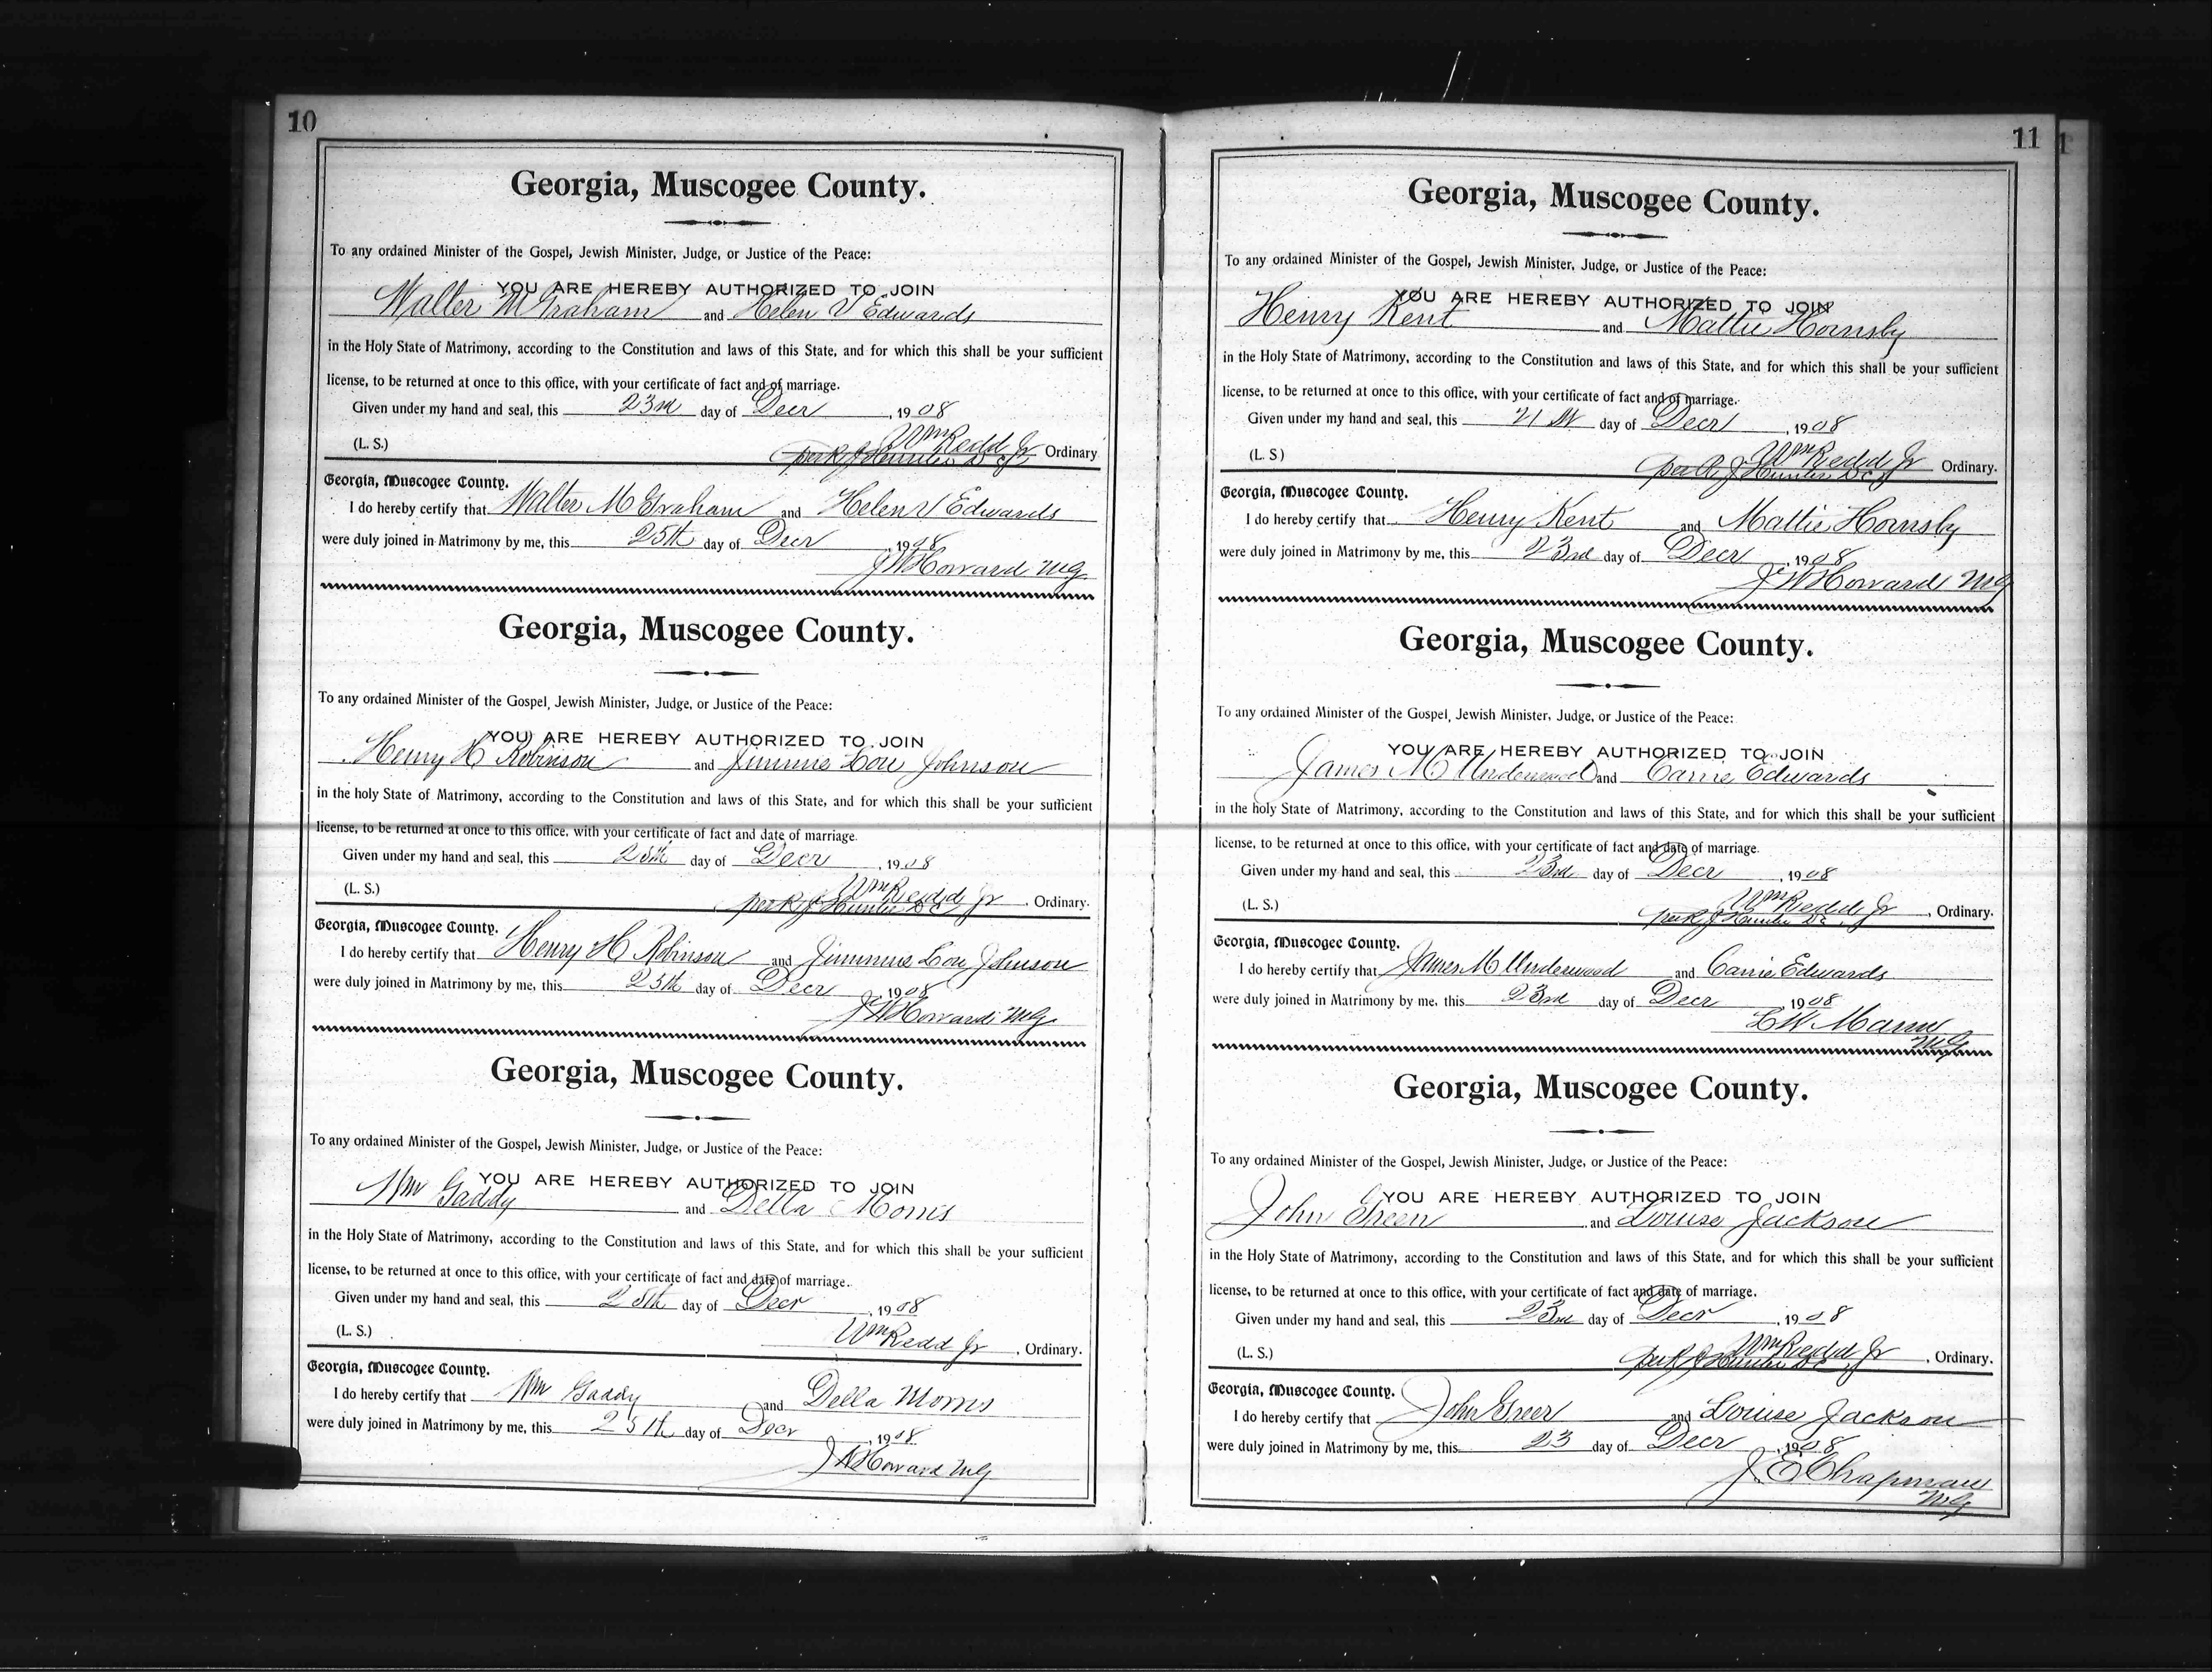 10
Georgia, Muscogee County.
To any ordained Minister of the Gospel, Jewish Minister, Judge, or Justice of the Peace:
YOU ARE HEREBY AUTHORIZED TO JOIN
Walter M Graham and Helen V Edwards
in the Holy State of Matrimony, according to the Constitution and laws of this State, and for which this shall be your sufficient
license, to be returned at once to this office, with your certificate of fact and of marriage.
Given under my hand and seal, this 23rd day of Decr, 1908
Wm Redd Jr
(L. S.) per R J Hunter D C Ordinary
Georgia, Muscogee County.
I do hereby certify that Walter M Graham and Helen V Edwards
were duly joined in Matrimony by me, this 25th day of Decr, 1908
J W Howard M G
Georgia, Muscogee County.
To any ordained Minister of the Gospel, Jewish Minister, Judge, or Justice of the Peace:
YOU ARE HEREBY AUTHORIZED TO JOIN
Henry H Robinson and Jimmie Lou Johnson
in the holy State of Matrimony, according to the Constitution and laws of this State, and for which this shall be your sufficient
license, to be returned at once to this office, with your certificate of fact and date of marriage.
Given under my hand and seal, this 25th day of Decr, 1908
Wm Redd Jr
(L. S.) per R J Hunter D C, Ordinary.
Georgia, Muscogee County.
I do hereby certify that Henry H Robinson and Jimmie Lou Johnson
were duly joined in Matrimony by me, this 25th day of Decr, 1908
J W Howard M G
Georgia, Muscogee County.
To any ordained Minister of the Gospel, Jewish Minister, Judge, or Justice of the Peace:
YOU ARE HEREBY AUTHORIZED TO JOIN
Wm Gaddy and Della Morris
in the Holy State of Matrimony, according to the Constitution and laws of this State, and for which this shall be your sufficient
license, to be returned at once to this office, with your certificate of fact and date of marriage.
Given under my hand and seal, this 25th day of Decr, 1908
(L. S.) Wm Redd Jr, Ordinary.
Georgia, Muscogee County.
I do hereby certify that Wm Gaddy and Della Morris
were duly joined in Matrimony by me, this 25th day of Decr, 1908
J W Howard M G
11
Georgia, Muscogee County.
To any ordained Minister of the Gospel, Jewish Minister, Judge, or Justice of the Peace:
YOU ARE HEREBY AUTHORIZED TO JOIN
Henry Kent and Mattie Hornsby
in the Holy State of Matrimony, according to the Constitution and laws of this State, and for which this shall be your sufficient
license, to be returned at once to this office, with your certificate of fact and of marriage.
Given under my hand and seal, this 21st day of Decr, 1908
Wm Redd Jr
(L. S) per R J Hunter D C Ordinary.
Georgia, Muscogee County.
I do hereby certify that Henry Kent and Mattie Hornsby
were duly joined in Matrimony by me, this 23rd day of Decr, 1908
J W Howard M G
Georgia, Muscogee County.
To any ordained Minister of the Gospel, Jewish Minister, Judge, or Justice of the Peace:
YOU ARE HEREBY AUTHORIZED TO JOIN
James M Underwood and Carrie Edwards
in the holy State of Matrimony, according to the Constitution and laws of this State, and for which this shall be your sufficient
license, to be returned at once to this office, with your certificate of fact and date of marriage.
Given under my hand and seal, this 23rd day of Decr, 1908
Wm Redd Jr
(L. S.) per R J Hunter D C, Ordinary.
Georgia, Muscogee County.
I do hereby certify that James M Underwood and Carrie Edwards
were duly joined in Matrimony by me, this 23rd day of Decr, 1908
L W Mann
M G
Georgia, Muscogee County.
To any ordained Minister of the Gospel, Jewish Minister, Judge, or Justice of the Peace:
YOU ARE HEREBY AUTHORIZED TO JOIN
John Green and Louise Jackson
in the Holy State of Matrimony, according to the Constitution and laws of this State, and for which this shall be your sufficient
license, to be returned at once to this office, with your certificate of fact and date of marriage.
Given under my hand and seal, this 23rd day of Decr, 1908
Wm Redd Jr
(L. S.) per R J Hunter D C, Ordinary.
Georgia, Muscogee County.
I do hereby certify that John Greer and Louise Jackson
were duly joined in Matrimony by me, this 23 day of Decr, 1908
J. E Chapman
M G